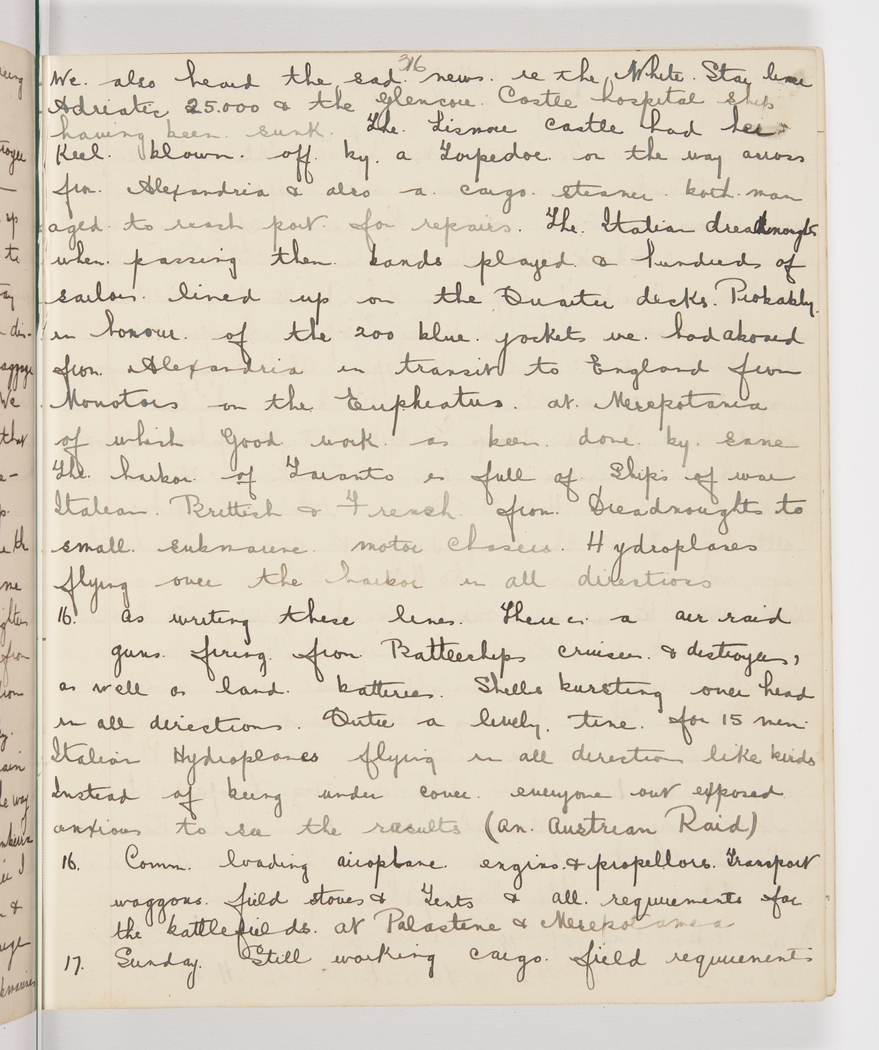 316
We. also heard the sad. news. re the White. Star line
Adriatic 25.000 & the Glencoe. Castle hospital ship
having been. sunk. The. Lismore castle had her
Keel. blown. off. by. a Torpedoe. on the way across
frm. Alexandria & also a cargo. steamer. both man
aged to reach port. for repairs. The. Italian dreadnoughts
when. passing them. bands played. & hundreds of
sailors. lined up on the Quarter decks. Probably
in honour. of the 200 blue. jackets we. had aboard
from. Alexandria in transit to England from
Monotors on the Euphratus. at. Mesepotamia
of which Good work. as been. done. by. same
The. harbor. of Taranto is full of Ships of war
Italian. Brittish & French. from. Dreadnoughts to
small. submarine. motor chasers. Hydroplanes
flying over the harbor in all directions
16. as writing these lines. There is a air raid
guns. firing. from Battleships cruiser. & destroyers,
as well as land. batteries. Shells bursting over head
in all directions. Quite a lively. time. for 15 min.
Italian Hydroplanes flying in all direction like birds
Instead of being under cover. everyone out exposed
anxious to see the results (an. Austrian Raid)
16. Comm. loading airoplane. engins. & propellors. Transport
waggons. field stoves & Tents & all. requirements for
the battlefields. at Palastene & Mesepotamea
17. Sunday. Still working cargo. field requirements